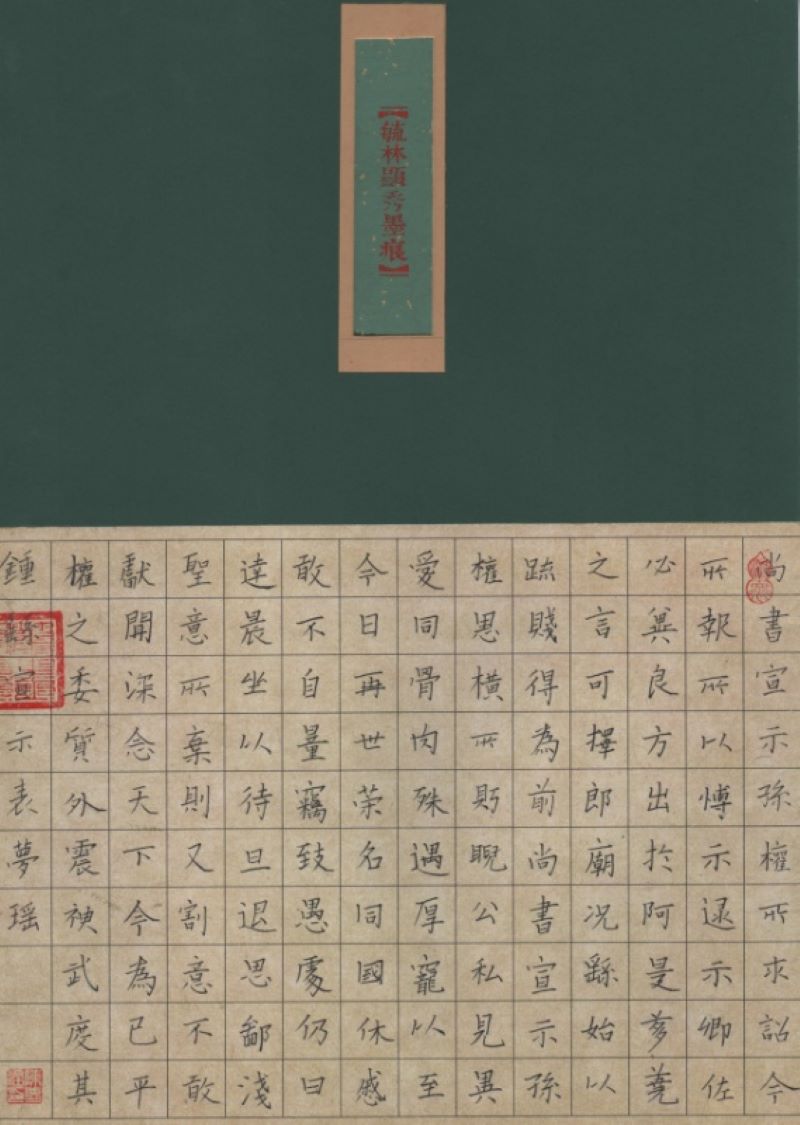 【毓林顯秀墨痕】
尚書宣示孫權所求詔令
所報所以博示逮示卿佐
必冀良方出於阿是芻蕘
之言可擇郎廟況繇始以
疏賤得為前尚書宣示孫
權恩橫所眄睨公私見異
愛同骨肉殊遇厚寵以至
今日再世榮名同國休慼
敢不自量竊致愚慮仍日
達晨坐以待旦退思鄙淺
聖意所棄則又割意不敢
獻聞深念天下今為已平
權之委質外震神武度其
鍾繇宣示表夢瑤